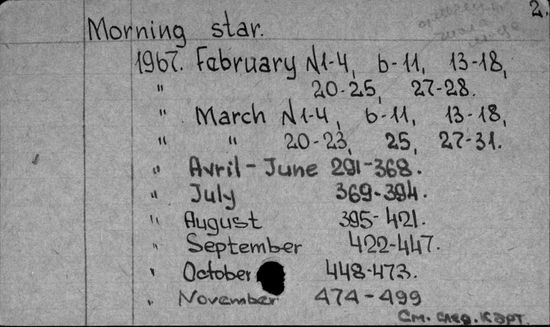 2.
Morning star.
1967. February N1-4, 6-11, 13-18,
" 20-25, 27-28.
" March N1-4, 6-11, 13-18,
" " 20-23, 25, 27-31.
" Avril - June 291-368.
" July 369-394.
" August 395-421.
" September 422-447.
" October 448-473.
" November 474-499
См. след. карт.